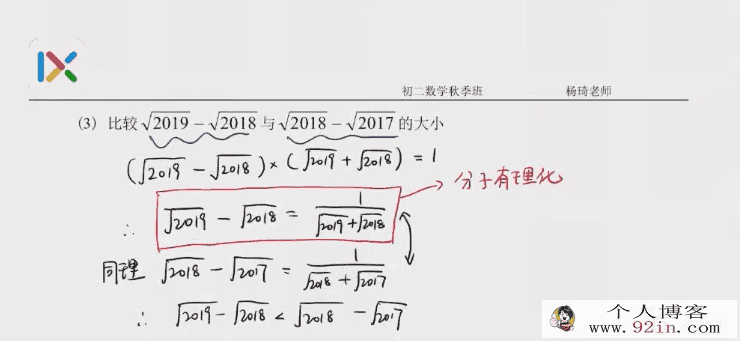 初二数学秋季班 杨琦老师
(3) 比较√2019－√2018与√2018－√2017的大小
(√2019 － √2018) × (√2019 + √2018) = 1
分子有理化
∴ √2019 － √2018 = 1/(√2019+√2018)
同理 √2018 － √2017 = 1/(√2018 + √2017)
∴ √2019 － √2018 < √2018 － √2017
个人博客
www.92in.com